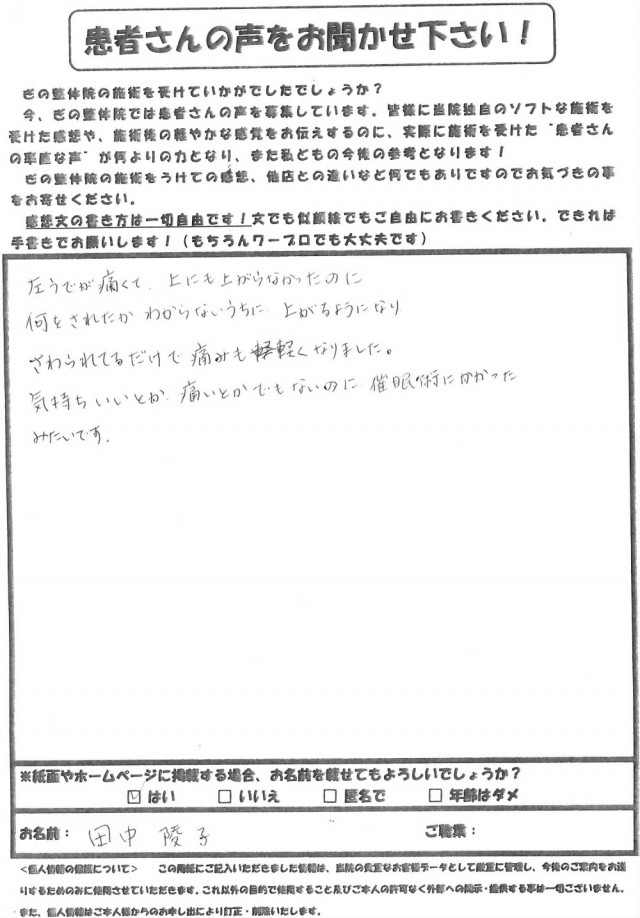 患者さんの声をお聞かせ下さい！
ぎの整体院の施術を受けていかがでしたでしょうか？
今、ぎの整体院では患者さんの声を募集しています。皆様に当院独自のソフトな施術を
受けた感想や、施術後の軽やかな感覚をお伝えするのに、実際に施術を受けた“患者さん
の率直な声”が何よりの力となり、また私どもの今後の参考となります！
ぎの整体院の施術をうけての感想、他店との違いなど何でもありですのでお気づきの事
をお寄せください。
感想文の書き方は一切自由です！文でも似顔絵でもご自由にお書きください。できれば
手書きでお願いします！（もちろんワープロでも大丈夫です）
左うでが痛くて、上にも上がらなかったのに
何をされたか わからないうちに、上がるようになり
さわられてるだけで痛みも軽くなりました。
気持ちいいとか、痛いとかでもないのに、催眠術にかかった
みたいです。
※紙面やホームページに掲載する場合、お名前を載せてもよろしいでしょうか？
☑はい □いいえ □匿名で □年齢はダメ
お名前： 田中 陵子 ご職業：
<個人情報の保護について> この用紙にご記入いただきました情報は、当院の貴重なお客様データとして厳重に管理し、今後のご案内をお送
りするためのみに使用させていただきます。これ以外の目的で使用すること及びご本人の許可なく外部への開示・提供する事は一切ございません。
また、個人情報はご本人様からのお申し出により訂正・削除いたします。